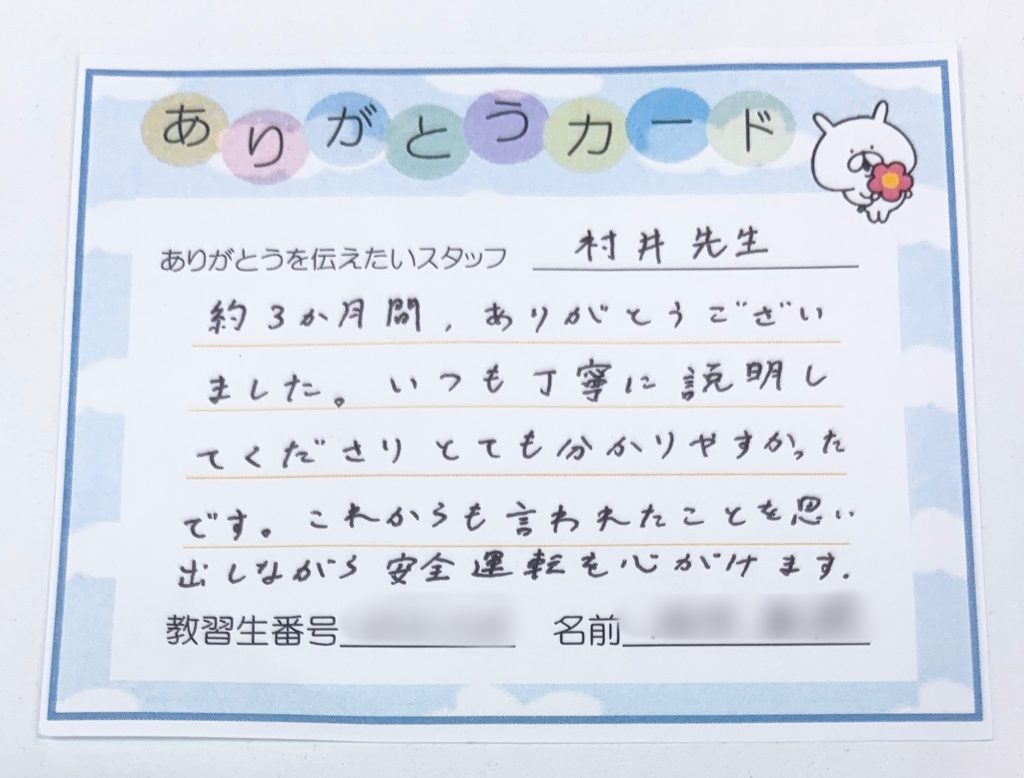 ありがとうカード
ありがとうを伝えたいスタッフ 村井先生
約3か月間、ありがとうござい
ました。いつも丁寧に説明し
てくださりとても分かりやすかった
です。これからも言われたことを思い
出しながら安全運転を心がけます.
教習生番号 名前